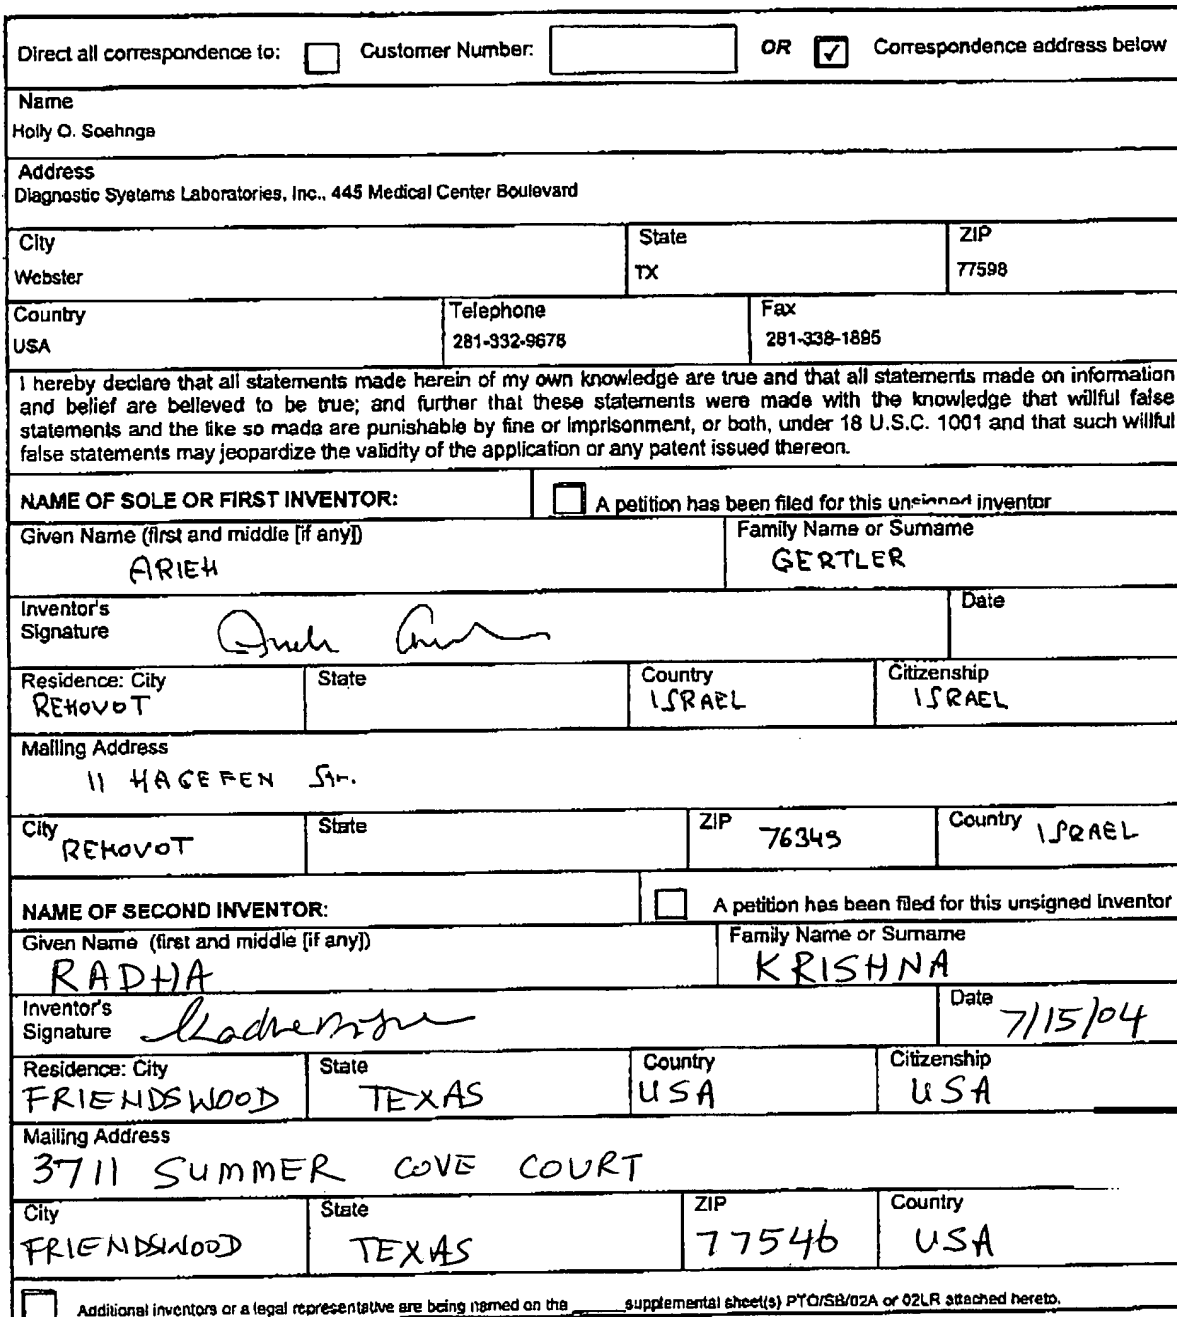 Direct all correspondence to: Customer Number: OR ✓ Correspondence address below
Name
Holly O. Soehnge
Address
Diagnostic Systems Laboratories, Inc., 445 Medical Center Boulevard
City State ZIP
Webster TX 77598
Country Telephone Fax
USA 281-332-9678 281-338-1895
I hereby declare that all statements made herein of my own knowledge are true and that all statements made on information
and belief are believed to be true; and further that these statements were made with the knowledge that willful false
statements and the like so made are punishable by fine or imprisonment, or both, under 18 U.S.C. 1001 and that such willful
false statements may jeopardize the validity of the application or any patent issued thereon.
NAME OF SOLE OR FIRST INVENTOR: A petition has been filed for this unsigned inventor
Given Name (first and middle [if any]) Family Name or Surname
ARIEH GERTLER
Inventor's Date
Signature
Residence: City State Country Citizenship
REHOVOT ISRAEL ISRAEL
Mailing Address
11 HAGEFEN Str.
City State ZIP Country
REHOVOT 76345 ISRAEL
NAME OF SECOND INVENTOR: A petition has been filed for this unsigned inventor
Given Name (first and middle [if any]) Family Name or Surname
RADHA KRISHNA
Inventor's Date
Signature 7/15/04
Residence: City State Country Citizenship
FRIENDSWOOD TEXAS USA USA
Mailing Address
3711 SUMMER COVE COURT
City State ZIP Country
FRIENDSWOOD TEXAS 77546 USA
Additional inventors or a legal representative are being named on the _____supplemental sheet(s) PTO/SB/02A or 02LR attached hereto.